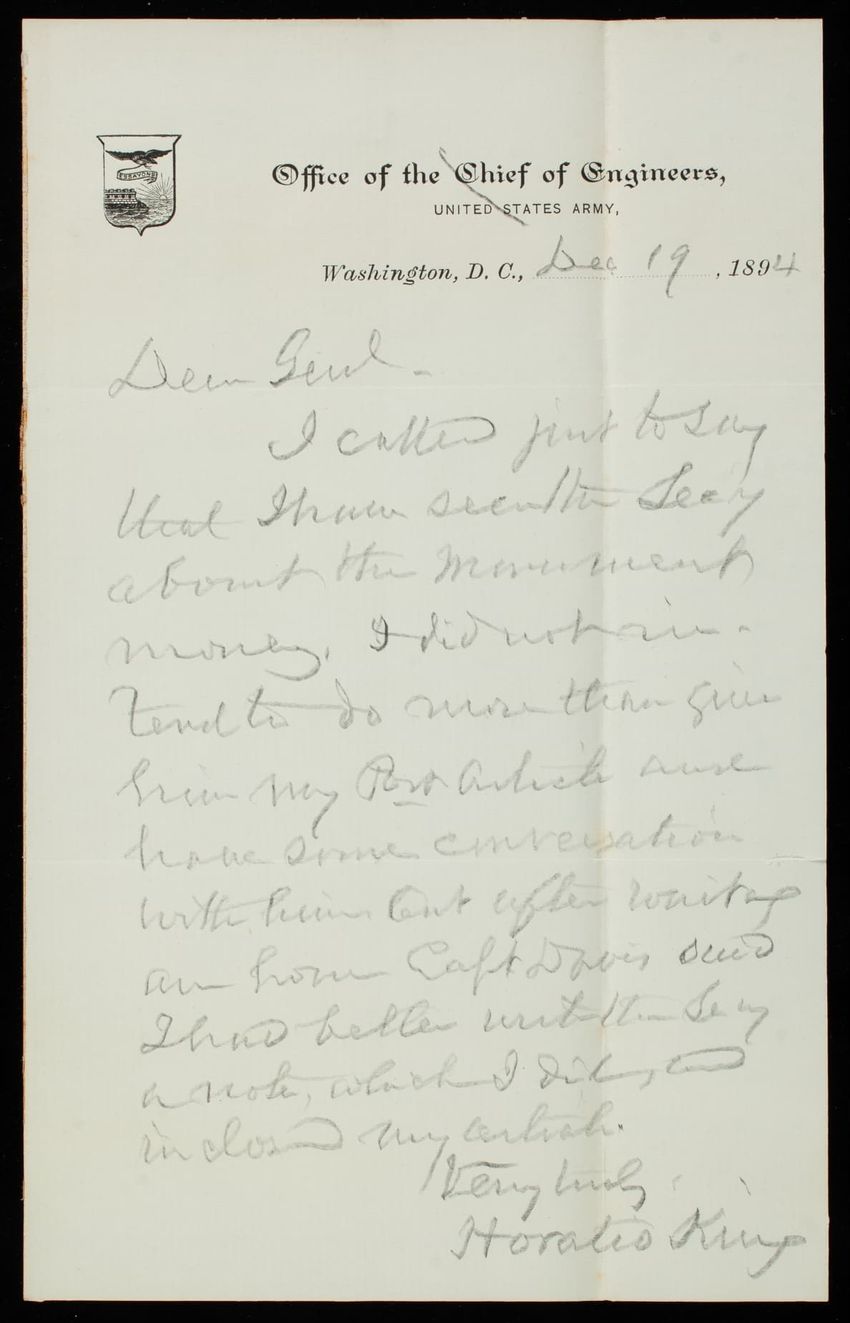 ESSAYONS
Office of the Chief of Engineers,
UNITED STATES ARMY,
Washington, D. C., Dec 19, 1894
Dear Genl -
I called just to say
that I have seen the Secy
about the Monument
money. I did not in-
tend to do more than give
him my Post Article and
have some conversation
with him but after waiting
an hour Capt Davis said
I had better write the Secy
a note, which I did, and
inclosed my article.
Very truly
Horatio King